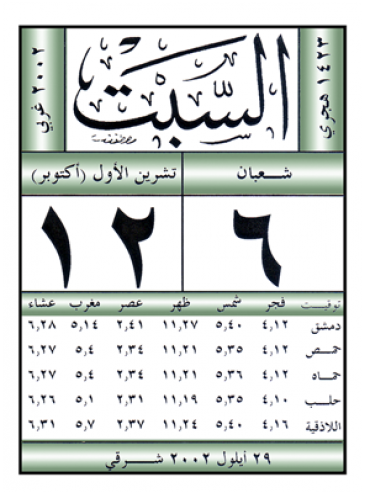 ١٤٢٣ هجري
السبت
٢٠٠٢ غربي
شعبان
تشرين الأول (أكتوبر)
٦
١٢
توقيت فجر شمس ظهر عصر مغرب عشاء
دمشق ٤,١٢ ٥,٤٠ ١١,٢٧ ٢,٤١ ٥,١٤ ٦,٢٨
حمص ٤,١٢ ٥,٣٥ ١١,٢١ ٢,٣٤ ٥,٤ ٦,٢٧
حماه ٤,١٢ ٥,٣٦ ١١,٢١ ٢,٣٤ ٥,٤ ٦,٢٧
حلب ٤,١٠ ٥,٣٥ ١١,١٩ ٢,٣١ ٥,١ ٦,٢٦
اللاذقية ٤,١٦ ٥,٤٠ ١١,٢٤ ٢,٣٧ ٥,٧ ٦,٣١
٢٩ أيلول ٢٠٠٢ شرقي